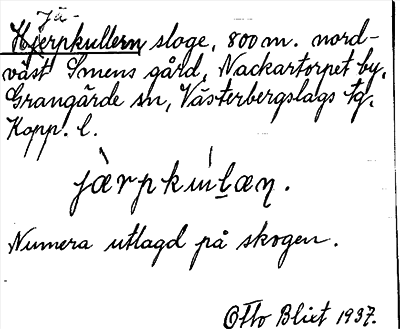 Jä-
Hjerpkullern sloge, 800 m. nord-
väst Smens gård, Nackartorpet by,
Grangärde sn, Västerbergslags tg.
Kopp. l.
jàrpkúlæn.
Numera utlagd på skogen.
Otto Blixt 1937.